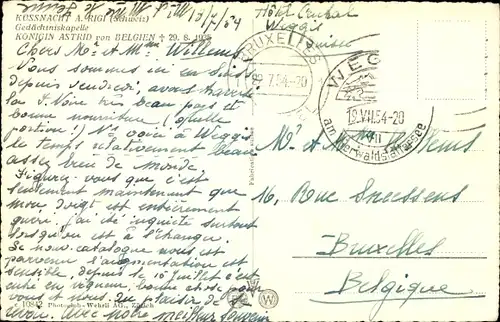 KÜSSNACHT A. RIGI (Schweiz)
Gedächtniskapelle
KÖNIGIN ASTRID von BELGIEN † 29. 8. 1935
19/7/54
Hôtel Central
Weggis
Suisse
Chers Mr et Mme Willems
Vous sommes en Suisse
depuis vendredi, avons traversé
la S. Noire très beau pays et
bonne nourriture (quelle
portion!) Ns voici à Weggis
le temps relativement beau
assez peu de monde
Figurez-vous que c'est
seulement maintenant que
mon doigt est entièrement
guéri. j'ai été inquiète surtout
lorsqu'on est à l'étranger.
Le nouv. catalogue nous est
parvenu l'augmentation est
sensible, depuis le 16 juillet c'est
entré en vigueur, bonne chose pour
vous et nous. Au plaisir de
Avec notre meilleur souvenir
BRUXELLES
7.54-20
WEGGIS
19.VII.54-20
am Vierwaldstättersee
Mr et Mme Willems
16, Rue Snessens
Bruxelles
Belgique
10842 Photogr. Wehrli AG., Zürich
W